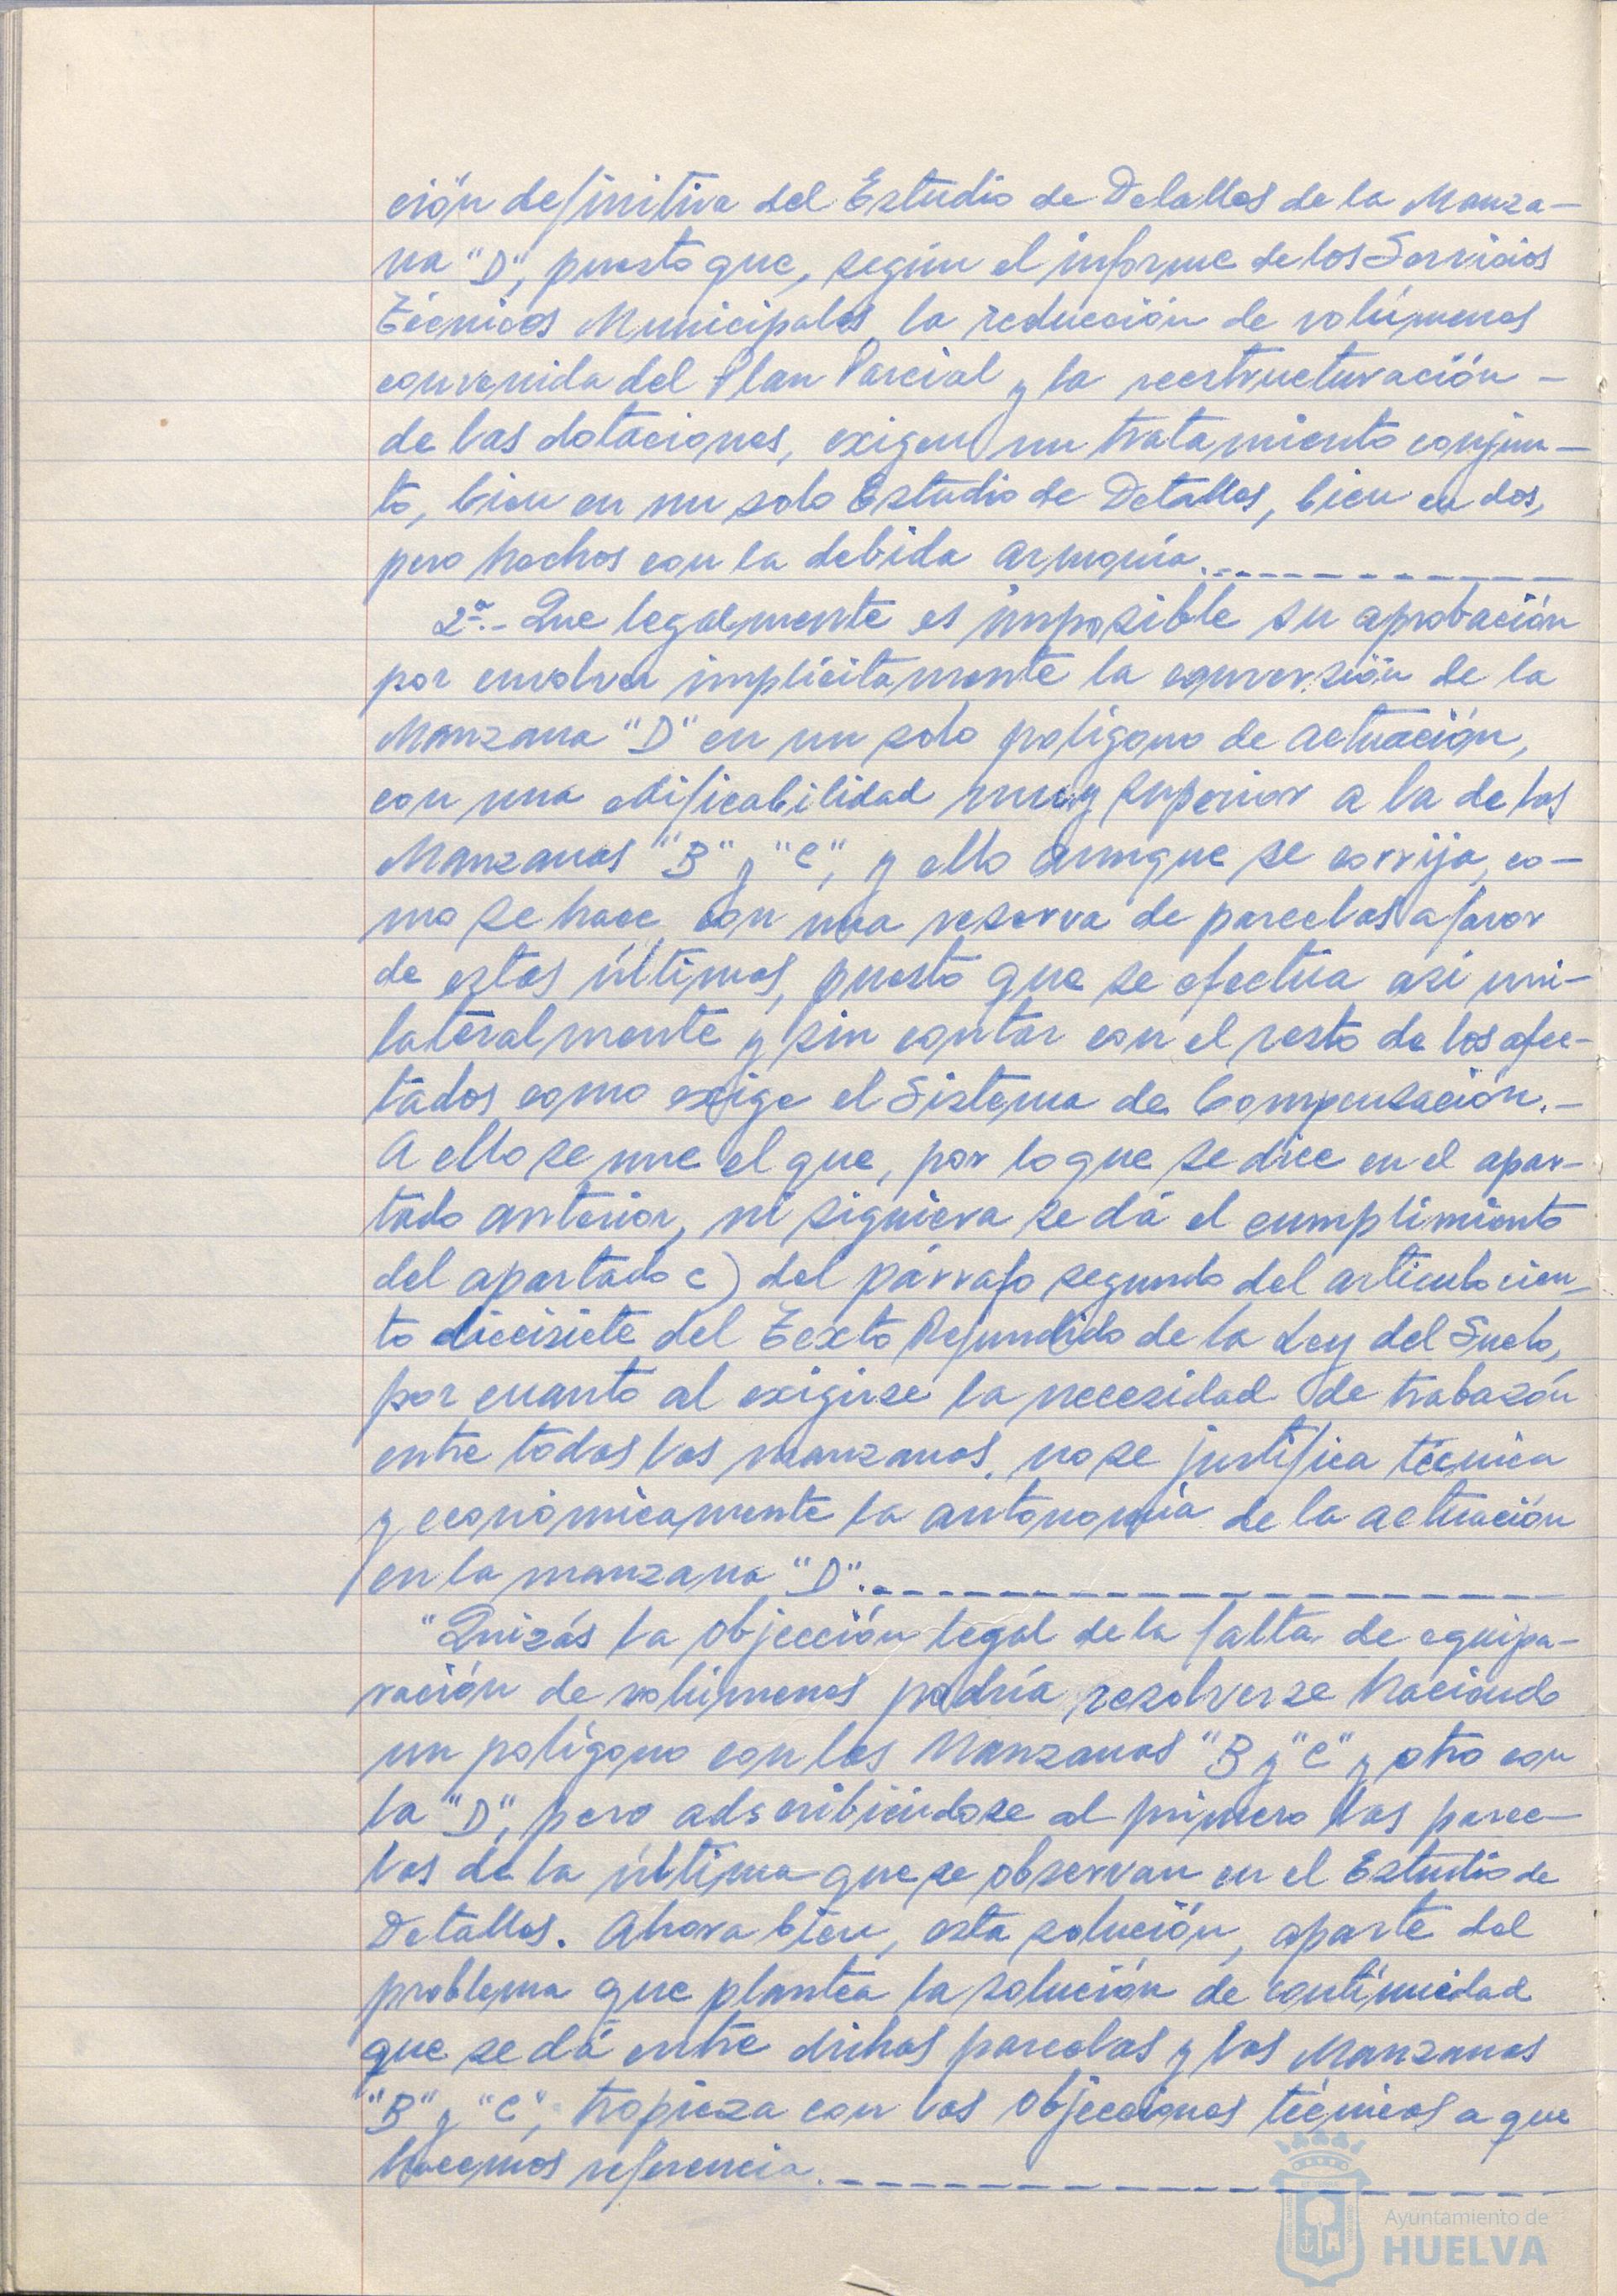 ción definitiva del Estudio de Detalles de la Manza-
na "D", puesto que, según el informe de los Servicios
Técnicos Municipales, la reducción de volúmenes
convenida del Plan Parcial y la reestructuración -
de las dotaciones, exigen un tratamiento conjun-
to, bien en un solo Estudio de Detalles, bien en dos,
pero hechos con la debida armonía.
2º.- Que legalmente es imposible su aprobación
por envolver implícitamente la conversión de la
Manzana "D" en un solo polígono de actuación,
con una edificabilidad muy superior a la de las
Manzanas "B" y "C", y ello aunque se corrija, co-
mo se hace, con una reserva de parcelas a favor
de estas últimas, puesto que se efectúa asi uni-
lateralmente y sin contar con el resto de los afec-
tados como exige el Sistema de Compensación.-
A ello se une el que, por lo que se dice en el apar-
tado anterior, ni siquiera se dá el cumplimiento
del apartado c) del párrafo segundo del articulo cien-
to diecisiete del Texto Refundido de la Ley del Suelo,
por cuanto al exigirse la necesidad de trabazón
entre todas las manzanas, no se justifica técnica
y económicamente la autonomía de la actuación
en la manzana "D".
"Quizás la objección legal de la falta de equipa-
ración de volúmenes podría resolverse haciendo
un polígono con las Manzanas "B y "C" y otro con
la "D", pero adscribiéndose al primero las parce-
las de la última que se observan en el Estudio de
Detalles. Ahora bien, esta solución, aparte del
problema que plantea la solución de contínuidad
que se dá entre dichas parcelas y las Manzanas
"B" y "C", tropieza con las objecciones técnicas a que
hacemos referencia.
Ayuntamiento de
HUELVA